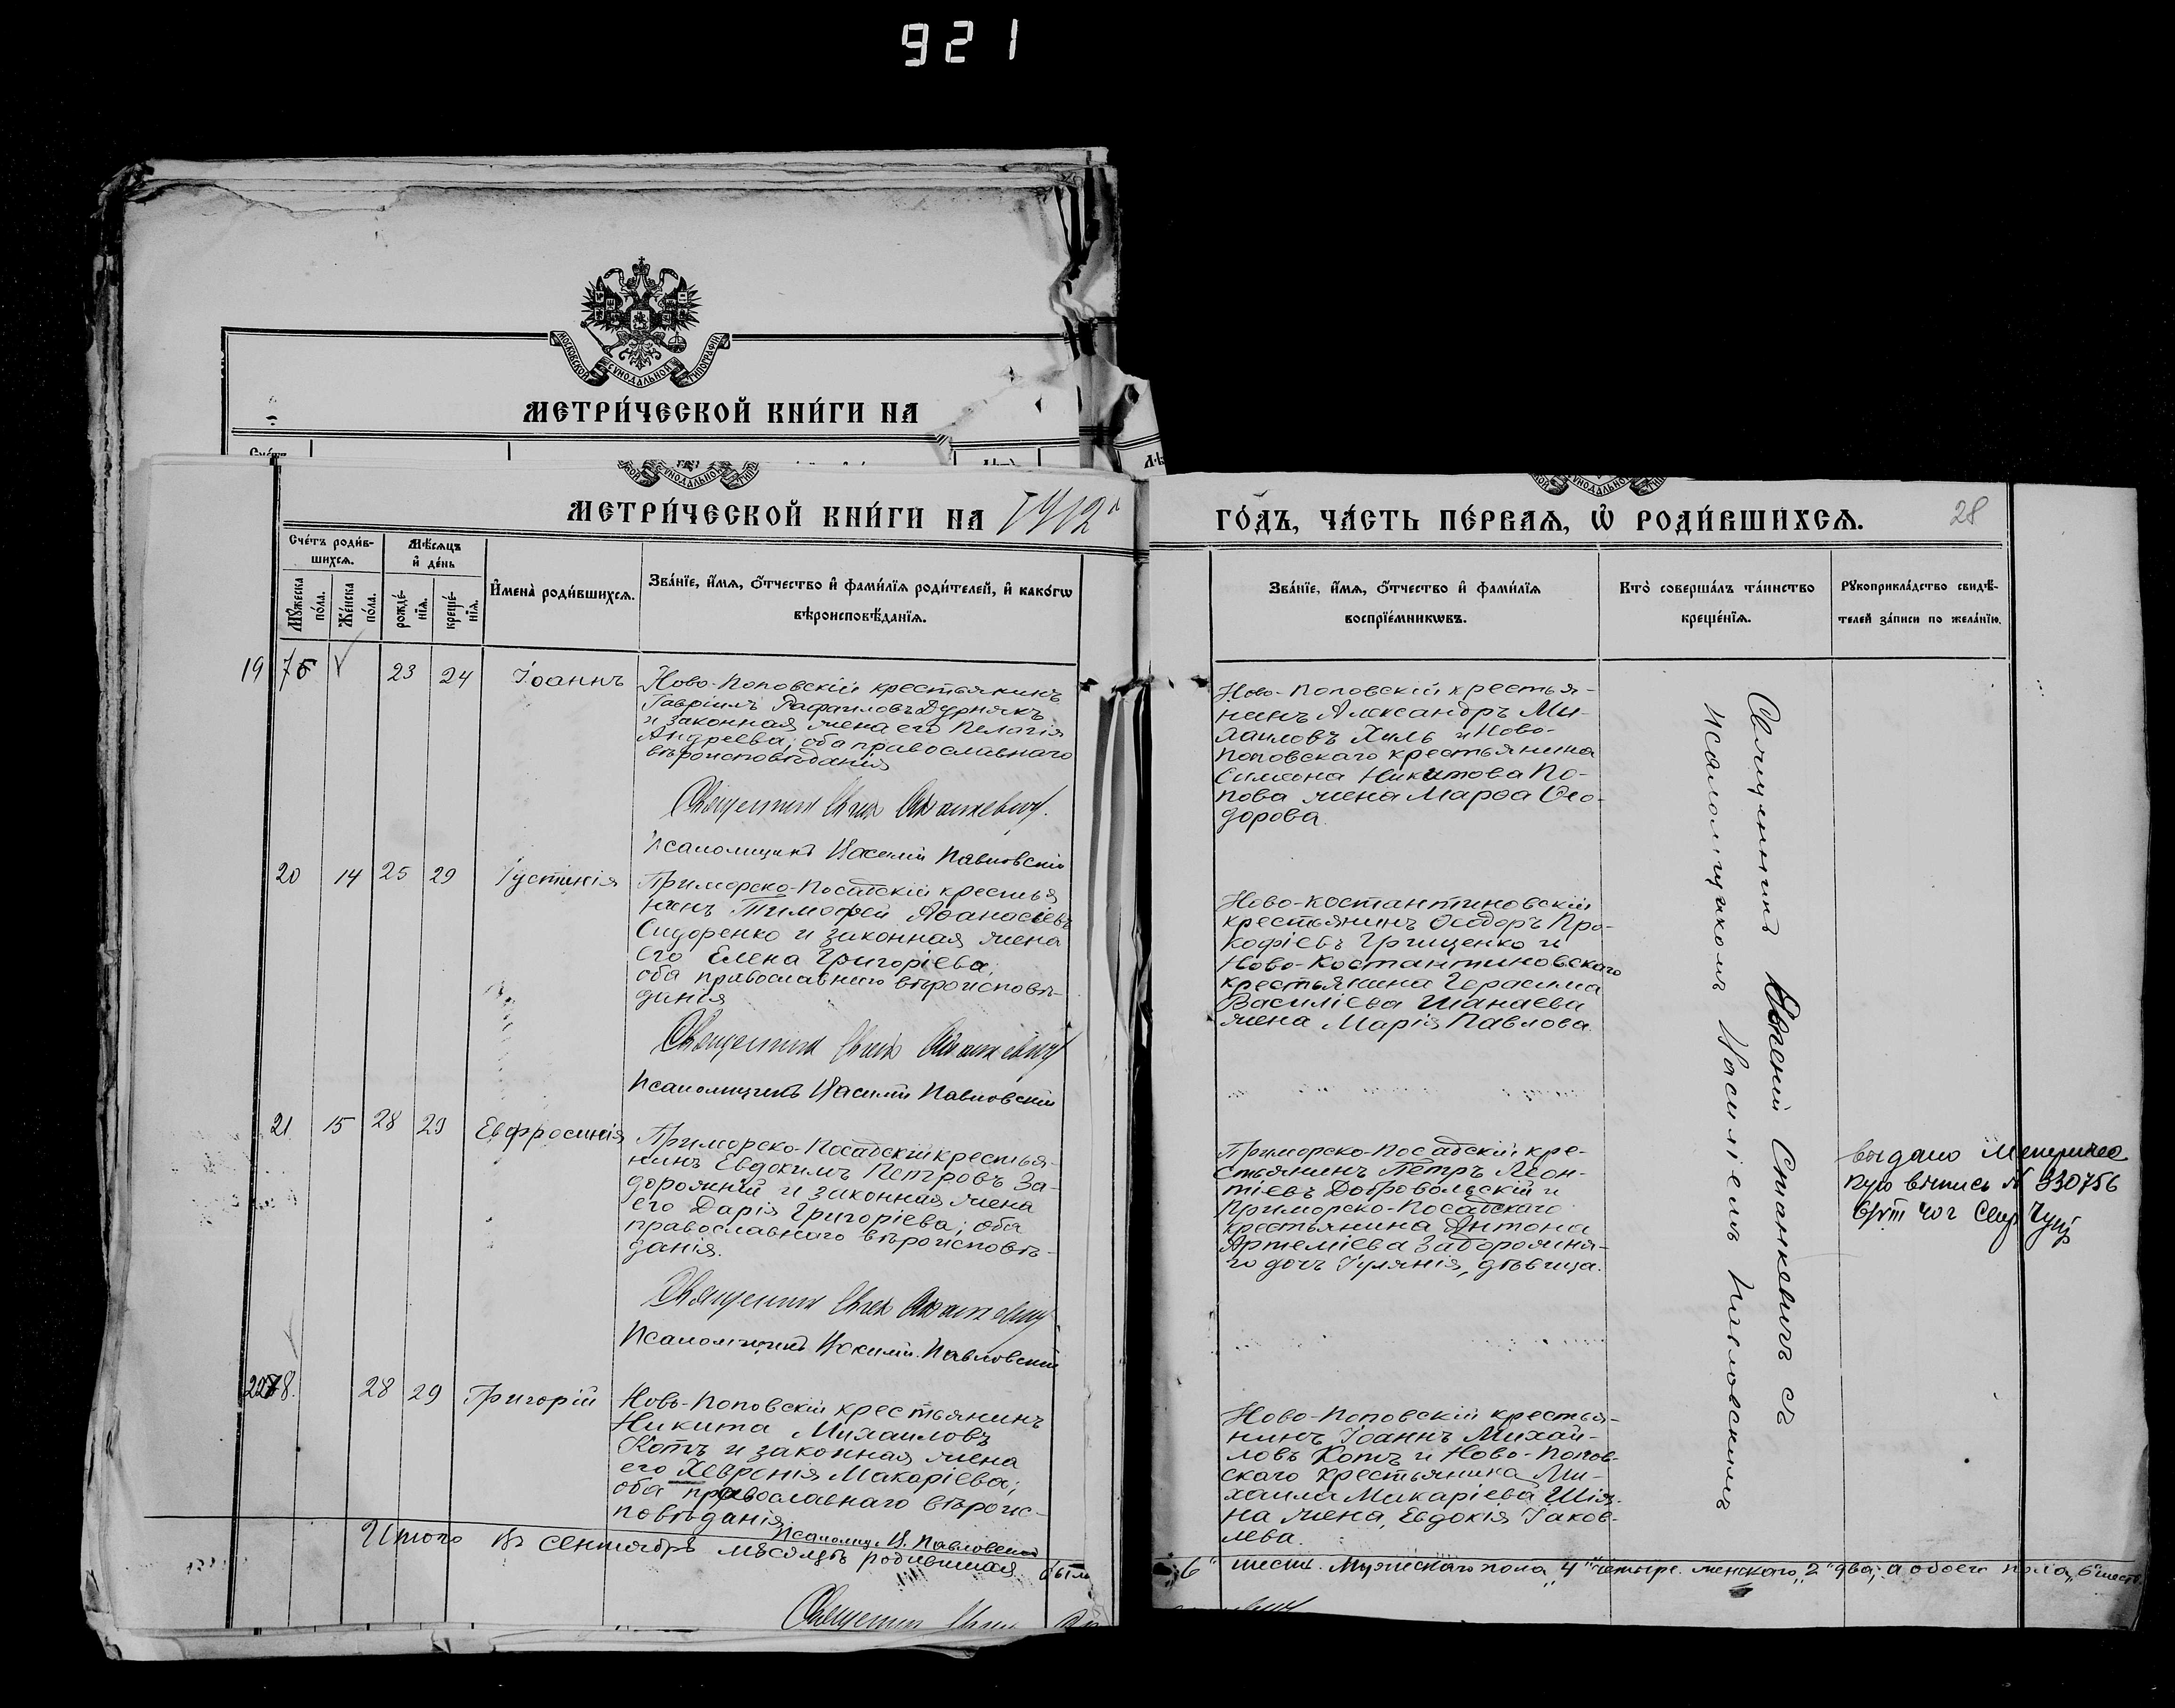 921
МОСКОВСКОЙ СѴНОДАЛЬНОЙ ТИПОГРАФІИ
МЕТРИ́ЧЕСКОЙ КНИ́ГИ НА
МЕТРИ́ЧЕСКОЙ КНИ́ГИ НА 1912
ГО́ДЪ, ЧА́СТЬ ПЕ́РВАѦ, Ѡ РОДИ́ВШИХСѦ. 28
Сче́тъ роди́вшихсѧ.
Мѣ́сѧцъ и де́нь
Мꙋ́жеска по́ла.
Же́нска по́ла.
рожде́нїѧ.
креще́нїѧ.
И́мена̀ роди́вшихсѧ.
Зва́нїе, и́мѧ, ѻ́тчество и фами́лїѧ роди́телей, и како́гѡ
вѣроисповѣ́данїѧ.
Зва́нїе, и́мѧ, ѻ́тчество и фами́лїѧ
воспрїе́мникѡвъ.
Кто̀ соверша́лъ та́инство
креще́нїѧ.
Рꙋкоприкла́дство свидѣ́-
телей за́писи по жела́нїю.
19 23 24 Іоаннъ
Ново-Поповскій крестьянинъ
Гавріилъ Рафаиловъ Дурнякъ
и законная жена его Пелагія
Андреева, оба православнаго
вѣроисповѣданія
Священникъ
Псаломщикъ Василій Павловскій
Ново-Поповскій крестья-
нинъ Александръ Ми-
хаиловъ Хиль и Ново-
Поповскаго крестьянина
Симеона Никитова По-
пова жена Марѳа Ѳео-
дорова.
20 14 25 29 Іустинія
Приморско-Посадскій крестья
нинъ Тимофей Аѳанасіевъ
Сидоренко и законная жена
его Елена Григоріева;
оба православнаго вѣроисповѣ-
данія
Священникъ
Псаломщикъ Василій Павловскій
Ново-Костантиновскій
крестьянинъ Ѳеодоръ Про-
кофіевъ Грищенко и
Ново-Костантиновскаго
крестьянина Герасима
Василіева Шанаева
жена Марія Павлова.
21 15 28 29 Евфросинія
Приморско-Посадскій крестья-
нинъ Евдокимъ Петровъ За-
дорожній и законная жена
его Дарія Григоріева; оба
православнаго вѣроисповѣ-
данія.
Священникъ
Псаломщикъ Василій Павловскій
Приморско-Посадскій кре-
стьянинъ Петръ Леон-
тіевъ Добровольскій и
Приморско-Посадскаго
крестьянина Антона
Артеміева Задорожня-
го дочь Іулянія, дѣвица.
выдано Метричес
330756
22 28 29 Григорій
Ново-Поповскій крестьянинъ
Никита Михаиловъ
Котъ и законная жена
его Хевронія Макаріева;
оба православнаго вѣроис-
повѣданія.
Псаломщ. В. Павловскій
Ново-Поповскій крестья-
нинъ Іоаннъ Михай-
ловъ Котъ и Ново-Попов-
скаго крестьянина Ми-
хаила Макаріева Шія-
на жена, Евдокія Іаков-
лева.
Священникъ Евгеній Станкевичъ съ
псаломщикомъ Василіемъ Павловскимъ
Итого въ сентябрѣ мѣсяцѣ родившихся
„6“ шесть. Мужескаго пола „4“ четыре. женскаго „2“ два; а обоего пола „6“ шесть.
Священникъ